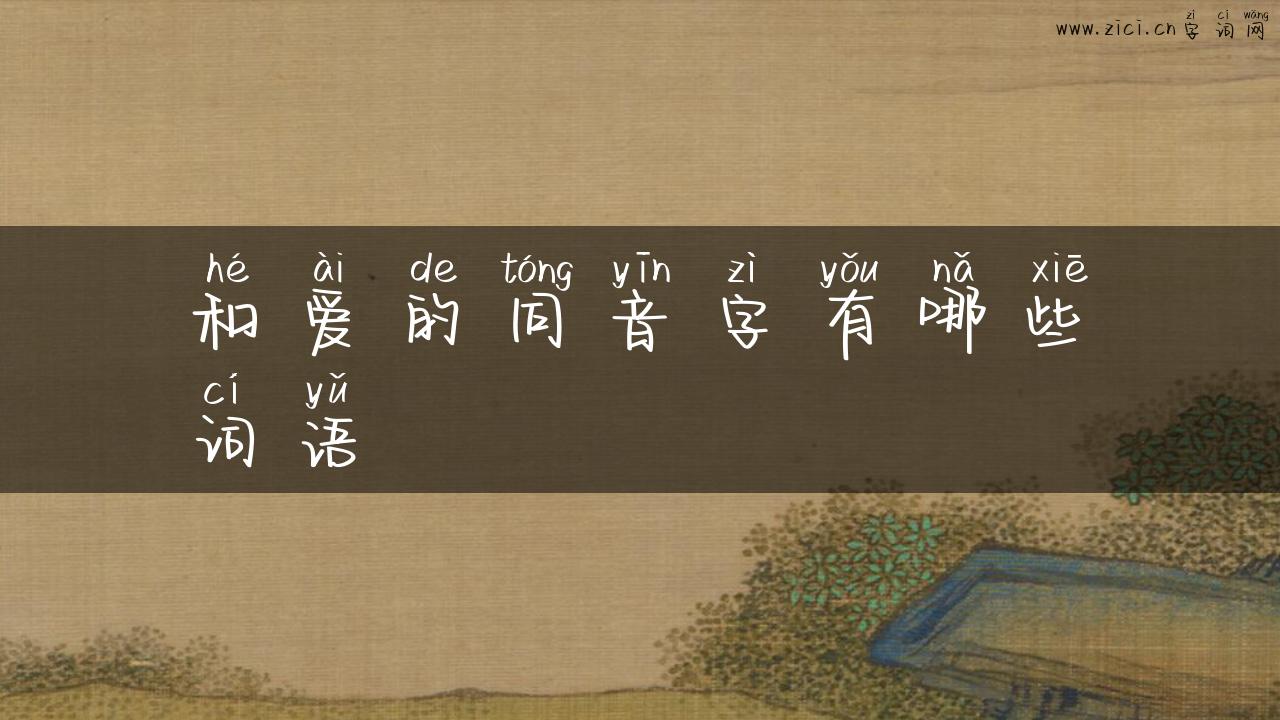 zì cí wǎng
www.zici.cn 字词网
hé ài de tóng yīn zì yǒu nǎ xiē
和爱的同音字有哪些
cí yǔ
词语